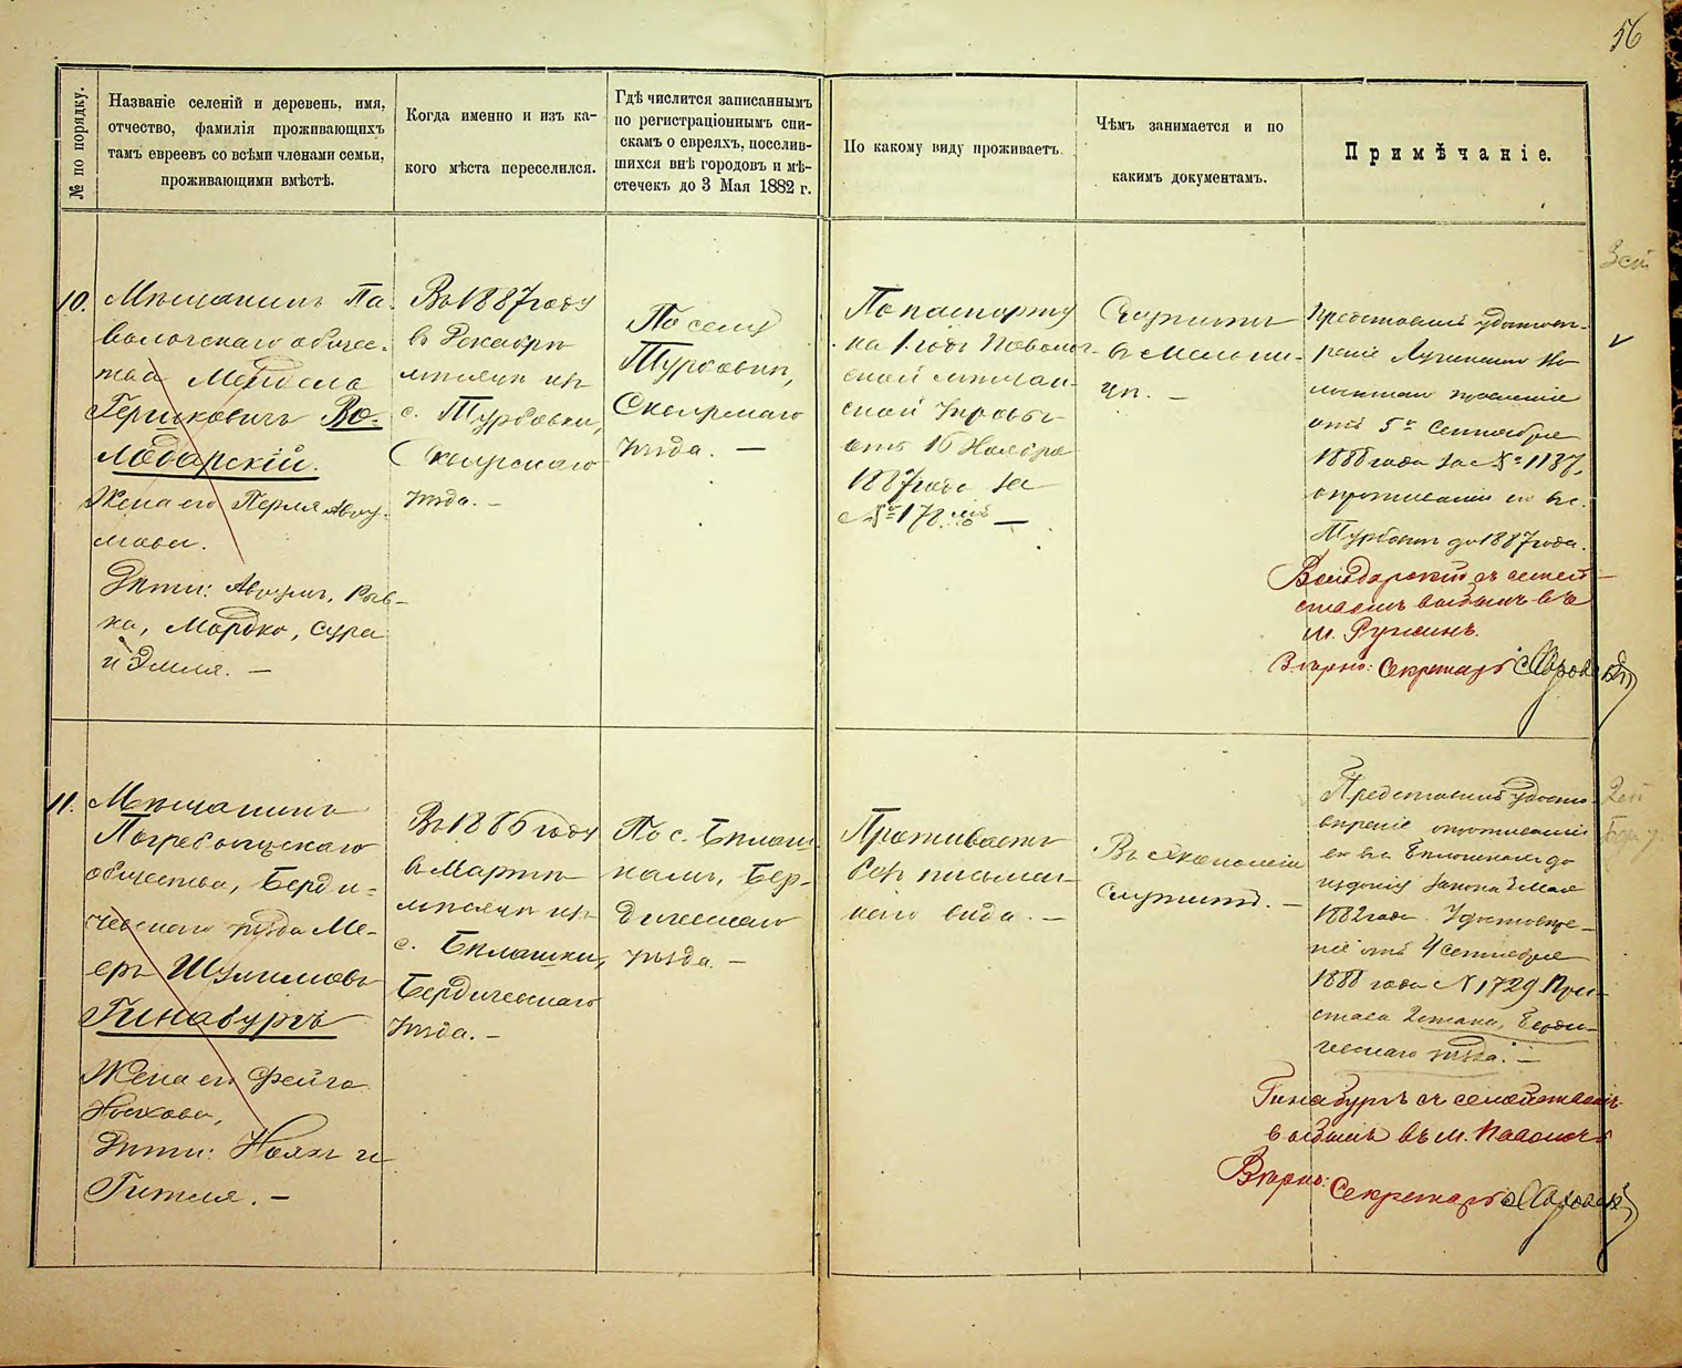 56
№ по порядку.
Названіе селеній и деревень, имя,
отчество, фамилія проживающихъ
тамъ евреевъ со всѣми членами семьи,
проживающими вмѣстѣ.
Когда именно и изъ ка-
кого мѣста переселился.
Гдѣ числится записаннымъ
по регистраціоннымъ спи-
скамъ о евреяхъ, поселив-
шихся внѣ городовъ и мѣ-
стечекъ до 3 Мая 1882 г.
По какому виду проживаетъ.
Чѣмъ занимается и по
какимъ документамъ.
Примѣчаніе.
10.
Мѣщанинъ Па-
волочскаго общес-
тва Мендель
Гершковичъ Во-
лодарскій.
Жена его Перля Авру-
мова.
Дѣти: Аврумъ, Рыв-
ка, Мордко, Сура
и Эмля. —
Въ 1887 году
въ Декабрѣ
мѣсяцѣ изъ
с. Турбовки,
Сквирскаго
уѣзда. —
По селу
Турбовкѣ,
Сквирскаго
уѣзда. —
По паспорту
на 1 годъ Паволоч-
ской мѣщан-
ской Управы
отъ 16 Ноября
1887 года за
№ 178.
—
Служитъ
въ мельни-
цѣ. —
Представилъ удостовѣ-
реніе Лучинскаго Во-
лостнаго правленія
отъ 5го Сентября
1888 года за № 1137,
о проживаніи его въ с.
Турбовкѣ до 1887 года.
Володарскій съ семей-
ствомъ выбылъ въ
м. Ружинъ.
Вѣрно: Секретарь
11.
Мѣщанинъ
Погребыщскаго
общества, Берди-
чевскаго уѣзда Ме-
еръ Шулимовъ
Гинзбургъ
Жена его Фейга
Носкова,
Дѣти: Нояхъ и
Гитля. —
Въ 1886 году
въ Мартѣ
мѣсяцѣ изъ
с. Бѣлашки,
Бердичевскаго
уѣзда. —
По с. Бѣлаш-
камъ, Бер-
дичевскаго
уѣзда. —
Проживаетъ
безъ письмен-
наго вида. —
Въ экономіи
служитъ. —
Представилъ удосто-
вѣреніе о проживаніи
его въ Бѣлашкахъ до
изданія закона 3 Мая
1882 года. Удостовѣре-
ніе отъ 4 Сентября
1888 года № 1729 При-
става 2 стана, Берди-
чевскаго уѣзда. —
Гинзбургъ съ семействомъ
выбылъ въ м. Паволочь
Вѣрно: Секретарь